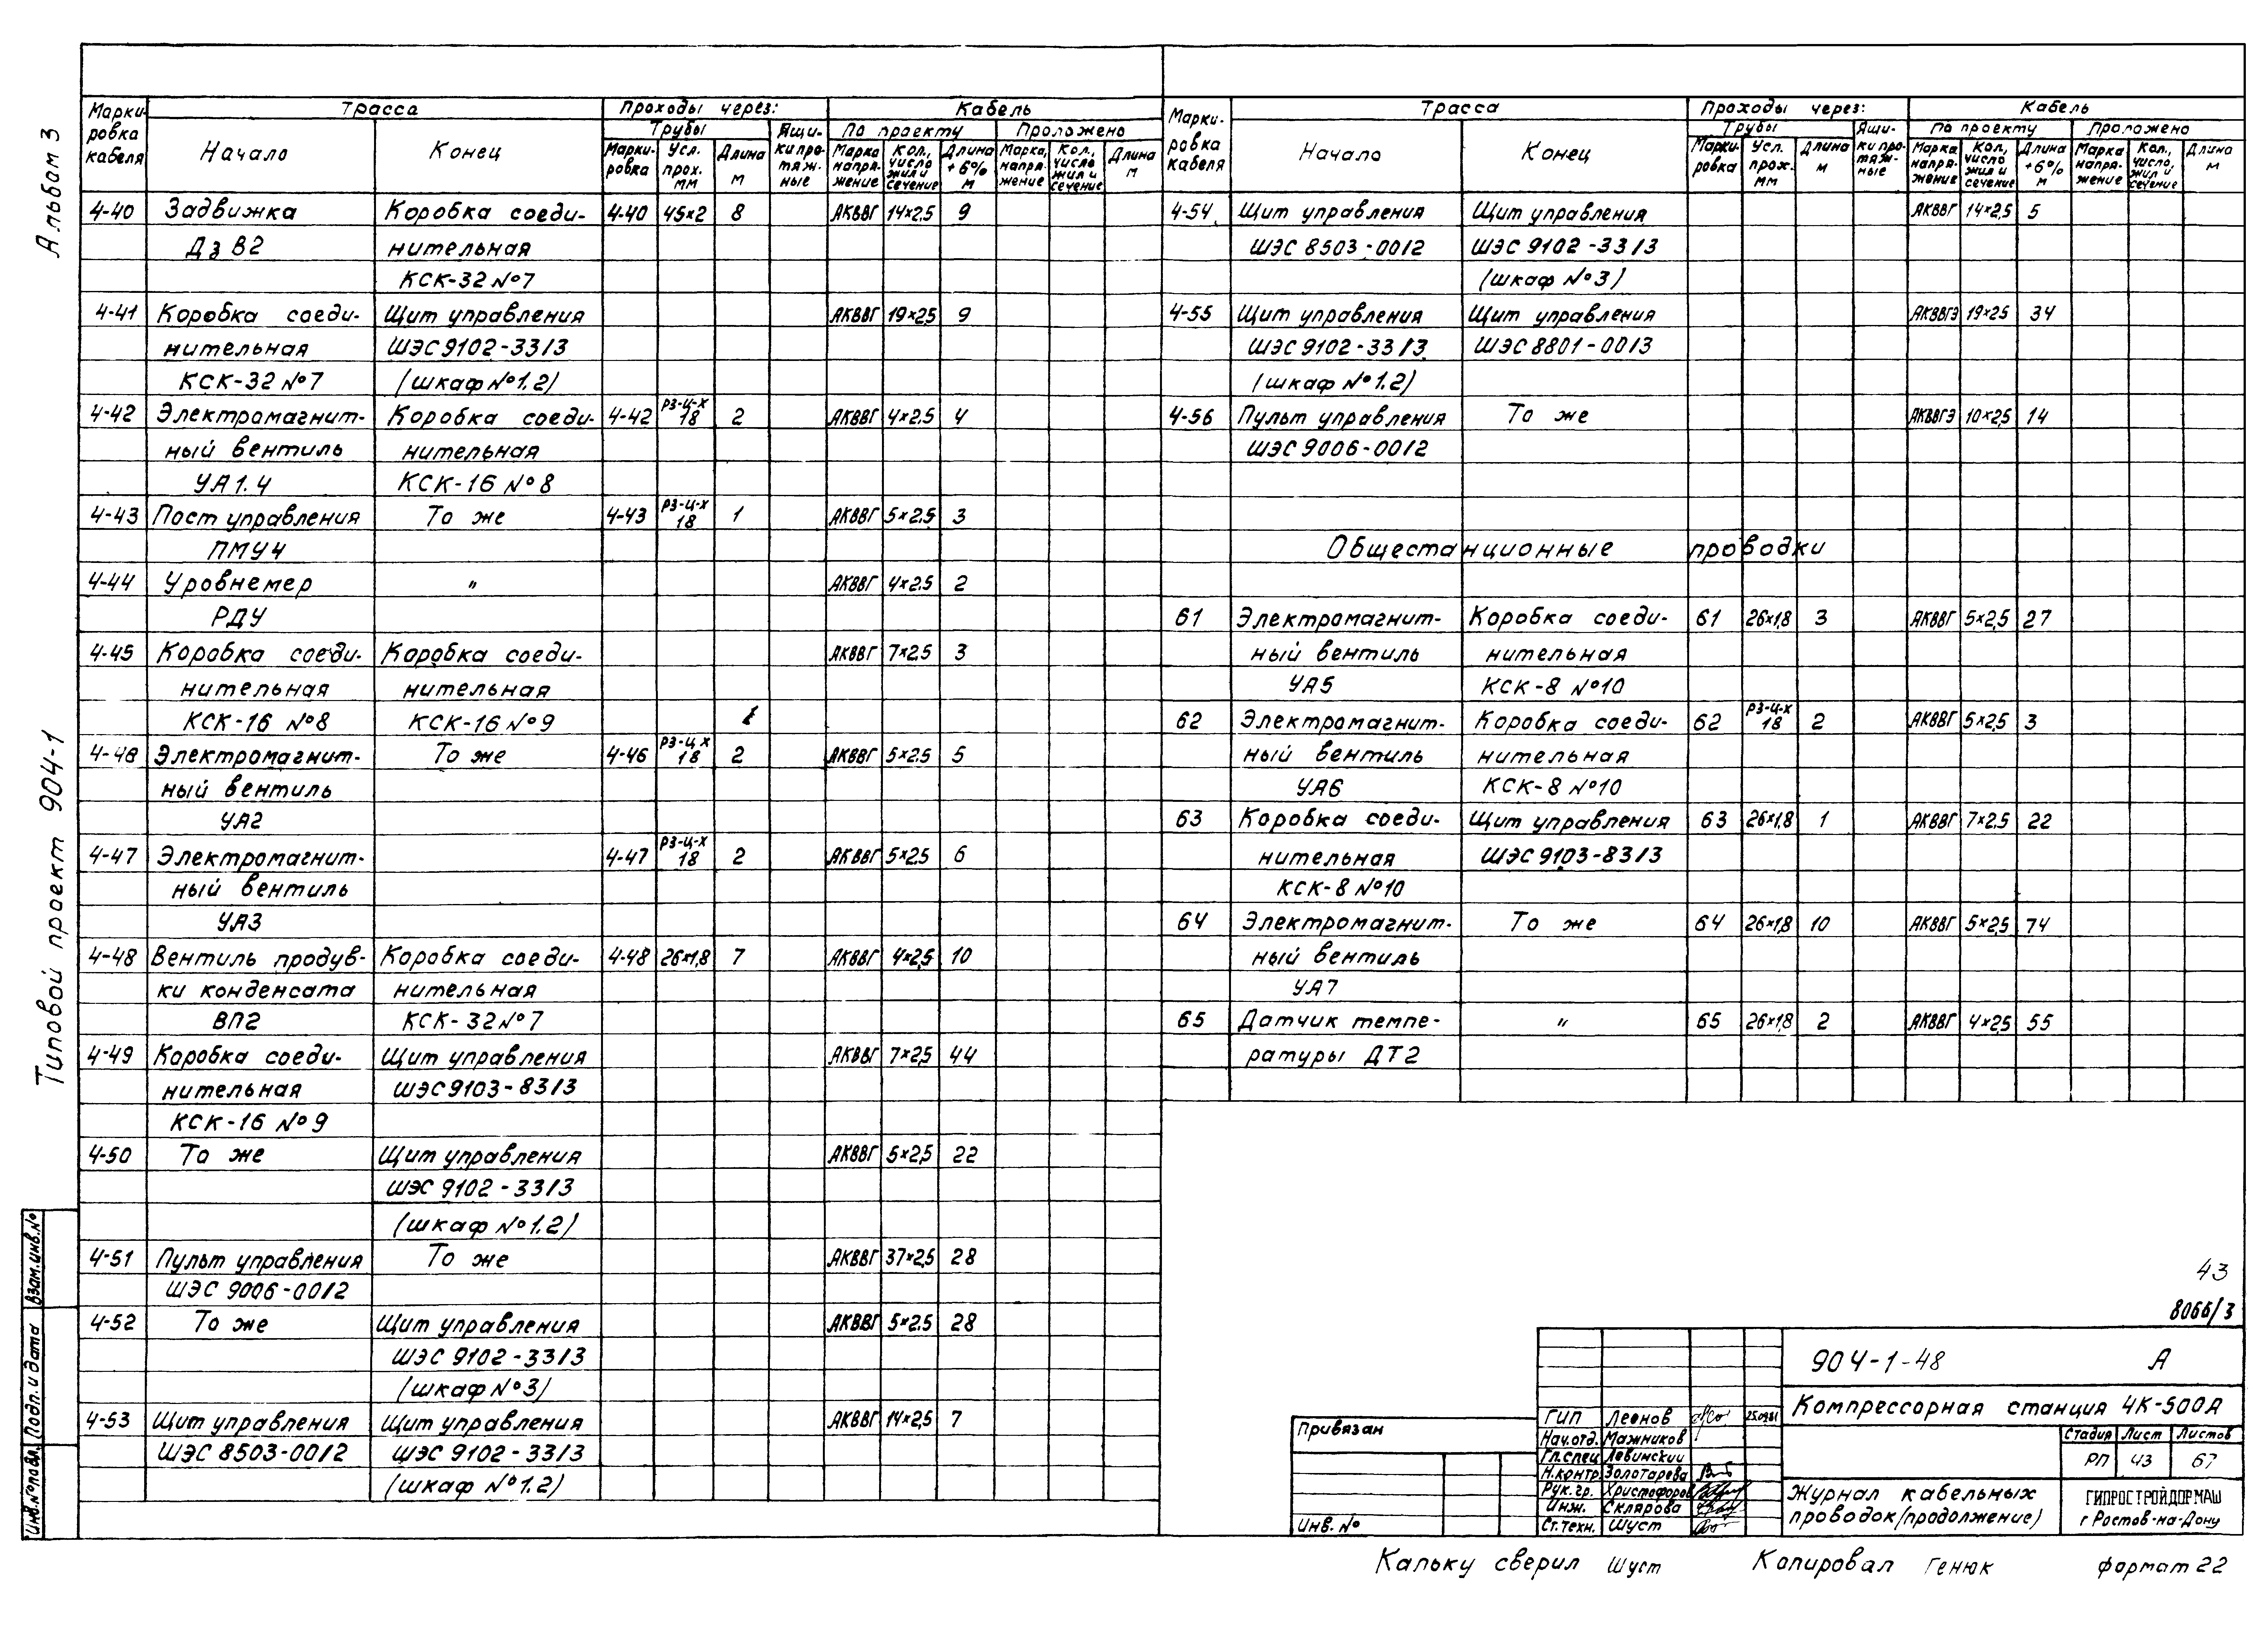 Альбом 3
Типовой проект 904-1
Взам.инв.№
Подп. и дата
Инв.№подл.
Марки-ровка кабеля | Трасса | Проходы через: | Кабель
Начало | Конец | Трубы | Ящи-ки протяж-ные | По проекту | Проложено
Марки-ровка | Усл. прох. мм | Длина м | Марка напря-жение | Кол., число жил и сечение | Длина +6% м | Марка, напря-жение | Кол., число жил и сечение | Длина м
4-40 Задвижка Коробка соеди- 4-40 45×2 8 АКВВГ 14×2,5 9
Дз В2 нительная
КСК-32 №7
4-41 Коробка соеди- Щит управления АКВВГ 19×2,5 9
нительная ШЭС 9102-33/3
КСК-32 №7 (шкаф №1.2)
4-42 Электромагнит- Коробка соеди- 4-42 РЗ-Ц-Х 18 2 АКВВГ 4×2,5 4
ный вентиль нительная
УА1.4 КСК-16 №8
4-43 Пост управления То же 4-43 РЗ-Ц-Х 18 1 АКВВГ 5×2,5 3
ПМУ4
4-44 Уровнемер " АКВВГ 4×2,5 2
РДУ
4-45 Коробка соеди- Коробка соеди- АКВВГ 7×2,5 3
нительная нительная
КСК-16 №8 КСК-16 №9
4-46 Электромагнит- То же 4-46 РЗ-Ц Х 18 2 АКВВГ 5×2,5 5
ный вентиль
УА2
4-47 Электромагнит- 4-47 РЗ-Ц-Х 18 2 АКВВГ 5×2,5 6
ный вентиль
УА3
4-48 Вентиль продув- Коробка соеди- 4-48 26×1,8 7 АКВВГ 4×2,5 10
ки конденсата нительная
ВП2 КСК-32 №7
4-49 Коробка соеди- Щит управления АКВВГ 7×2,5 44
нительная ШЭС 9103-83/3
КСК-16 №9
4-50 То же Щит управления АКВВГ 5×2,5 22
ШЭС 9102-33/3
(шкаф №1.2)
4-51 Пульт управления То же АКВВГ 37×2,5 28
ШЭС 9006-00/2
4-52 То же Щит управления АКВВГ 5×2,5 28
ШЭС 9102-33/3
(шкаф №3)
4-53 Щит управления Щит управления АКВВГ 14×2,5 7
ШЭС 8503-00/2 ШЭС 9102-33/3
(шкаф №1.2)
Марки-ровка кабеля | Трасса | Проходы через: | Кабель
Начало | Конец | Трубы | Ящи-ки про-тяж-ные | По проекту | Проложено
Марки-ровка | Усл. прох. мм | Длина м | Марка напря-жение | Кол., число жил и сечение | Длина +6% м | Марка напря-жение | Кол., число, жил и сечение | Длина м
4-54 Щит управления Щит управления АКВВГ 14×2,5 5
ШЭС 8503-00/2 ШЭС 9102-33/3
(шкаф №3)
4-55 Щит управления Щит управления АКВВГЭ 19×2,5 34
ШЭС 9102-33/3 ШЭС 8801-00/3
(шкаф №1.2)
4-56 Пульт управления То же АКВВГЭ 10×2,5 14
ШЭС 9006-00/2
Общестанционные проводки
61 Электромагнит- Коробка соеди- 61 26×1,8 3 АКВВГ 5×2,5 27
ный вентиль нительная
УА5 КСК-8 №10
62 Электромагнит- Коробка соеди- 62 РЗ-Ц-Х 18 2 АКВВГ 5×2,5 3
ный вентиль нительная
УА6 КСК-8 №10
63 Коробка соеди- Щит управления 63 26×1,8 1 АКВВГ 7×2,5 22
нительная ШЭС 9103-83/3
КСК-8 №10
64 Электромагнит- То же 64 26×1,8 10 АКВВГ 5×2,5 74
ный вентиль
УА7
65 Датчик темпе- " 65 26×1,8 2 АКВВГ 4×2,5 55
ратуры ДТ2
43
8066/3
Привязан
Инв. №
ГИП Леонов 25.09.81
Нач.отд. Мажников
Гл.спец Левинский
Н.контр. Золотарева
Рук.гр. Христофоров
Инж. Склярова
Ст.техн. Шуст
904-1-48 А
Компрессорная станция 4К-500А
Стадия Лист Листов
РП 43 67
Журнал кабельных
проводок/продолжение)
ГИПРОСТРОЙДОРМАШ
г Ростов-на-Дону
Кальку сверил Шуст Копировал Генюк формат 22